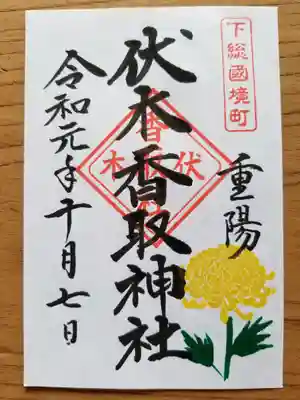 下総國境町
重陽
伏木香取神社
令和元年十月七日